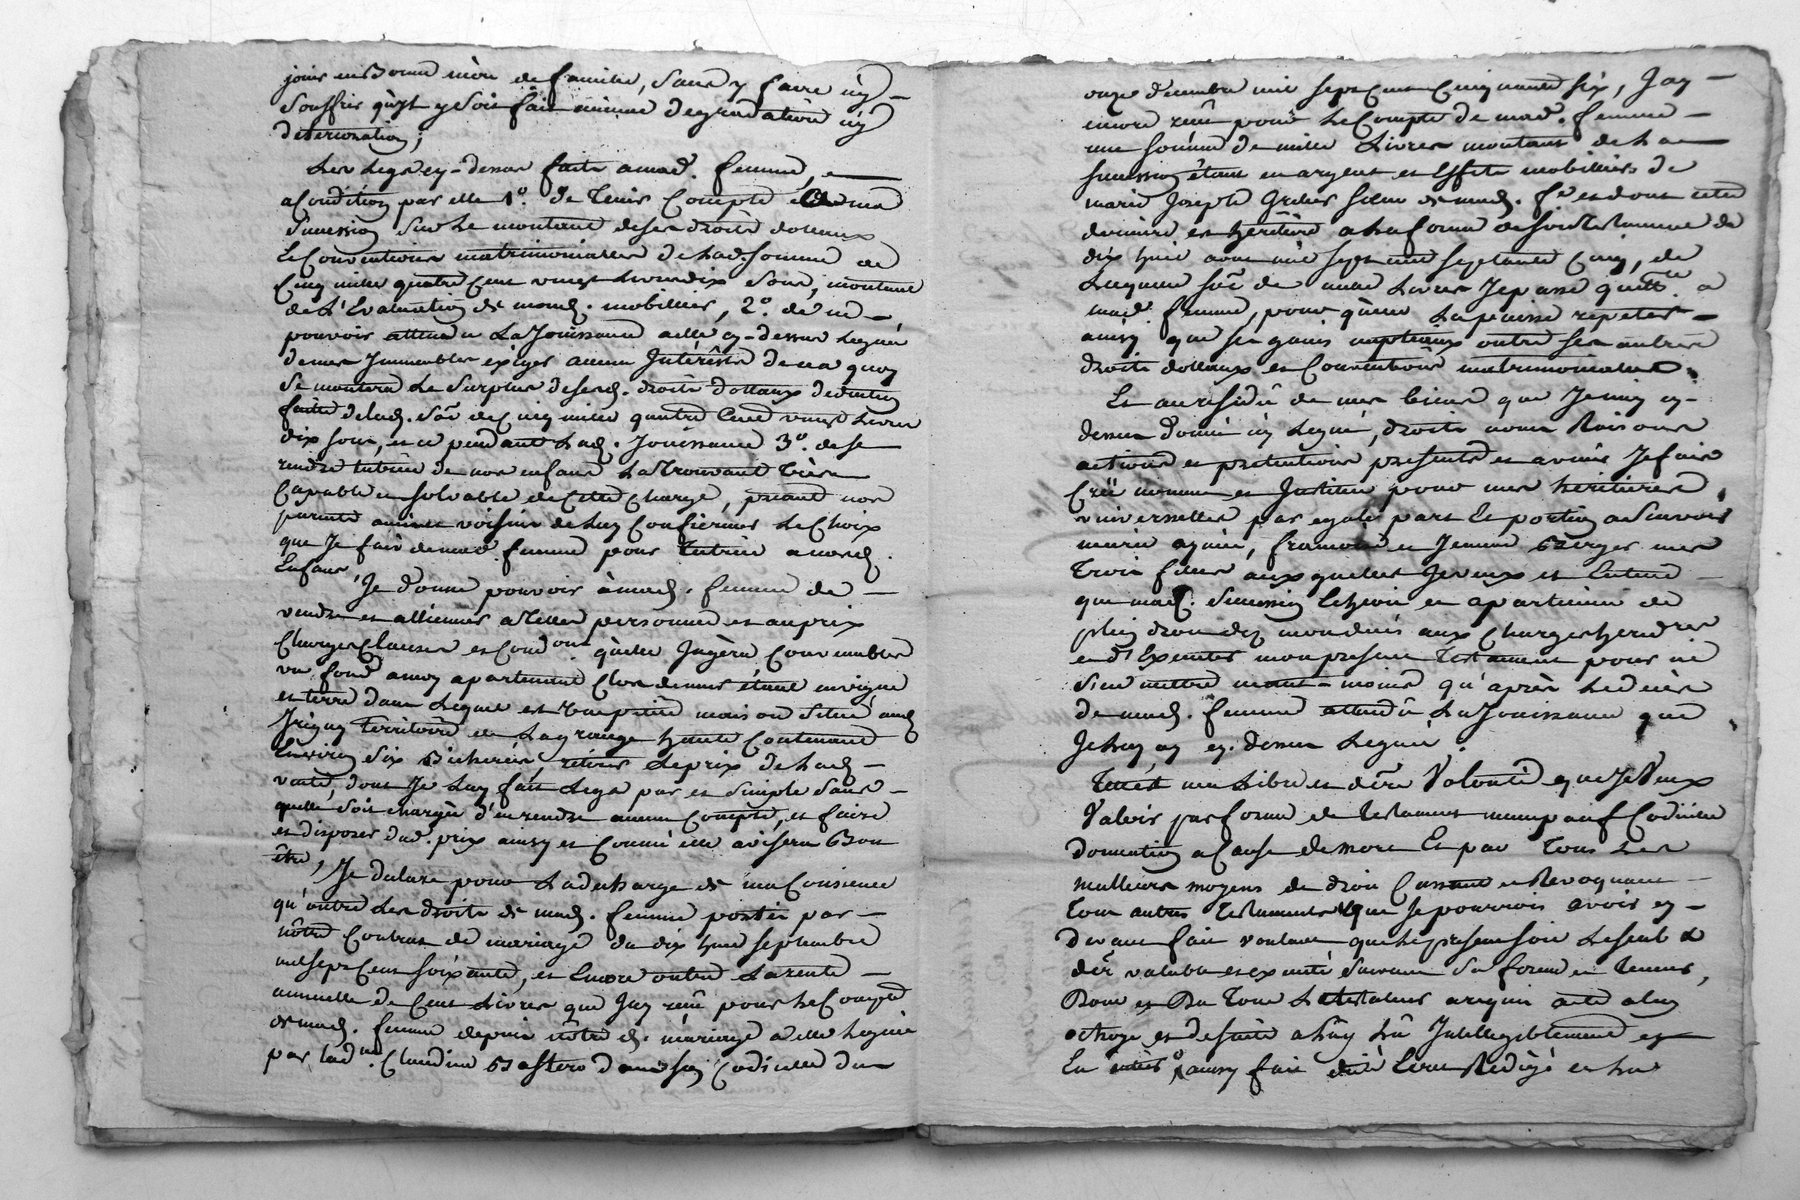 jouir en Bonne mère de famille, sans y faire ny
souffrir qu'yl y soit fait aucune degradation ny
deterioration;
Les Legs cy-dessus faits a mad. femme,
a Condition par elle 1º. de Tenir Compte a ma
Succession sur Le montant de ses droits dottaux
& Conventions matrimoniales de Lad. somme de
Cinq mille quatre Cent vingt Livres dix Sous, montant
de L'Evaluation de mond. mobillier, 2º. de ne
pouvoir attendu La Jouissance a elle cy-dessus Leguée
de mes Immeubles exiger aucun Intérêsts de ce a quoy
Se montera Le Surplus de sesd. droits dottaux deduction
faite de Lad. Som̃e de Cinq mille quatre Cent vingt Livres
dix sous, et ce pendant Lad. Jouissance 3º. de se
rendre tutrice de nos enfans La Trouvant Très
Capable et solvable de Cette Charge, priant nos
parents amis et voisins de Luy Confirmer Le Choix
que Je fais de mad. femme pour Tutrice a mesd.
Enfans,
Je donne pouvoir à mad. femme de
vendre et allienner a telles personnes et au prix
Charges Clauses et Condons qu'elle Jugera Convenables
un fond a moy apartenant Clos de murs étant en vigne
et terre dans Lequel est une petite maison Situé aud.
Irigny Territoire de La grange haute Contenant
Environ Six Bicherées, retirer Le prix de Lad.
vente, dont Je Luy fait Legs pur et Simple sans
quelle soit chargée d'en rendre aucun Compte, et faire
et disposer dud. prix ainsy et Comme elle avisera Bon
être,
Je declare pour La decharge de ma Consience
qu'outre Les droits de mad. femme portés par
nôtre Contrat de mariage du dix huit septembre
mil sept Cent soixante, et Encore outre La rente
annuelle de Cent Livres que J'ay reçu pour Le Compte
de mad. femme depuis nôtre d. mariage a elle Leguée
par Lad. Claudine Bastero dans son Codicille du
onze decembre mil sept Cent Cinquante six, J'ay
encore reçu pour Le Compte de mad. femme
une somme de mille Livres montant de La
succession étant en argent et Effets mobilliers de
marie Joseph soeur de mad. fe et dont cette
derniere est heritiere a La forme de son Testament du
dix huit avril mil sept cent septante Cinq, de
Laquelle som̃e de mille Livres Je passe quitte a
mad. femme, pour qu'elle La puisse repeter
ainsy que ses gains nuptiaux outre ses autres
droits dottaux et Conventions matrimoniales.
Et au residû de mes biens que Je n'ay cy
dessus donné ny Legué, droits noms Raisons
actions et pretentions presents et avenir Je fais
Créé nomme et Institue pour mes heritieres
universelles par egale part et portion a Scavoir
marie agnès, françoise et Jeanne Berger mes
trois filles auxquelles Je veux et Entend
que mad. succession Echoie et apartienne de
plein droit dez mon decès aux Charges hereditres
et d'Executer mon present Testament pour ne
s'en mettre neant-moins qu'après Le decès
de mad. femme attendu La Jouissance que
Je Luy ay cy-dessus Leguée.
Telle est ma Libre et derre Volonté que Je Veux
Valoir par forme de testament nuncupatif Codicille
donnation a Cause de mort Et par Tous Les
meilleurs moyens de droit Cassant et Revoquant
tous autres testaments que Je pourrois avoir cy
devant fait voulant que Le present soit Le seul &
der valable et executé suivant sa forme et teneur,
Dont et Du Tout Le testateur a requis acte a Luy
octroyé et de suite a Luy Lû Intelligiblement et
En entier, ainsy fait dicté Ecrit Redigé et Lu